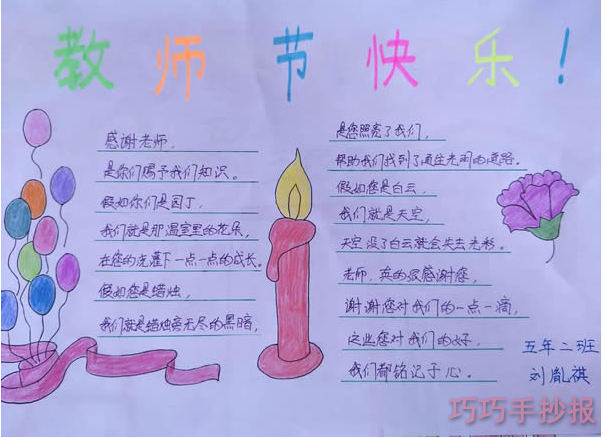 教师节快乐!
感谢老师,
是你们赐予我们知识。
假如你们是园丁,
我们就是那温室里的花朵,
在您的浇灌下一点一点的成长。
假如您是蜡烛,
我们就是蜡烛旁无尽的黑暗,
是您照亮了我们,
帮助我们找到了通往光明的道路。
假如您是白云,
我们就是天空,
天空没了白云就会失去光彩。
老师,真的很感谢您,
谢谢您对我们的一点一滴,
这些您对我们的好,
我们都铭记于心。
五年二班
刘胤祺
巧巧手抄报